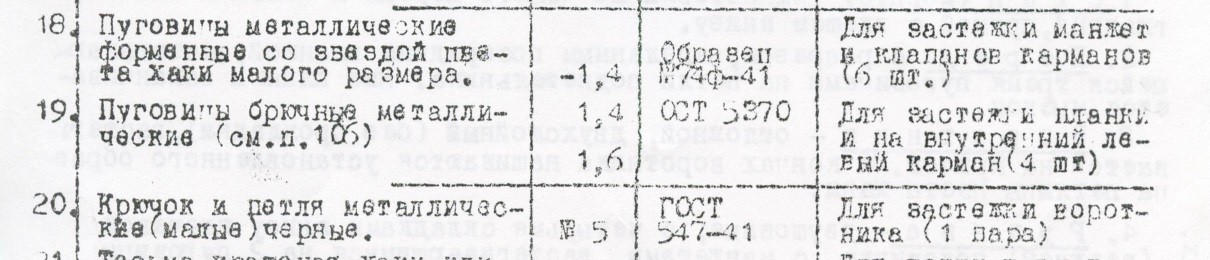 18. Пуговицы металлические
форменные со звездой цве-
та хаки малого размера.
-1,4
Образец
№74ф-41
Для застежки манжет
и клапанов карманов
(6 шт.
19. Пуговицы брючные металли-
ческие (см.п.106)
1,4
1,6
ОСТ 5370
Для застежки планки
и на внутренний ле-
вый карман(4 шт)
20. Крючок и петля металличес-
кие(малые)черные
№ 3
ГОСТ
547-41
Для застежки ворот-
ника (1 пара)